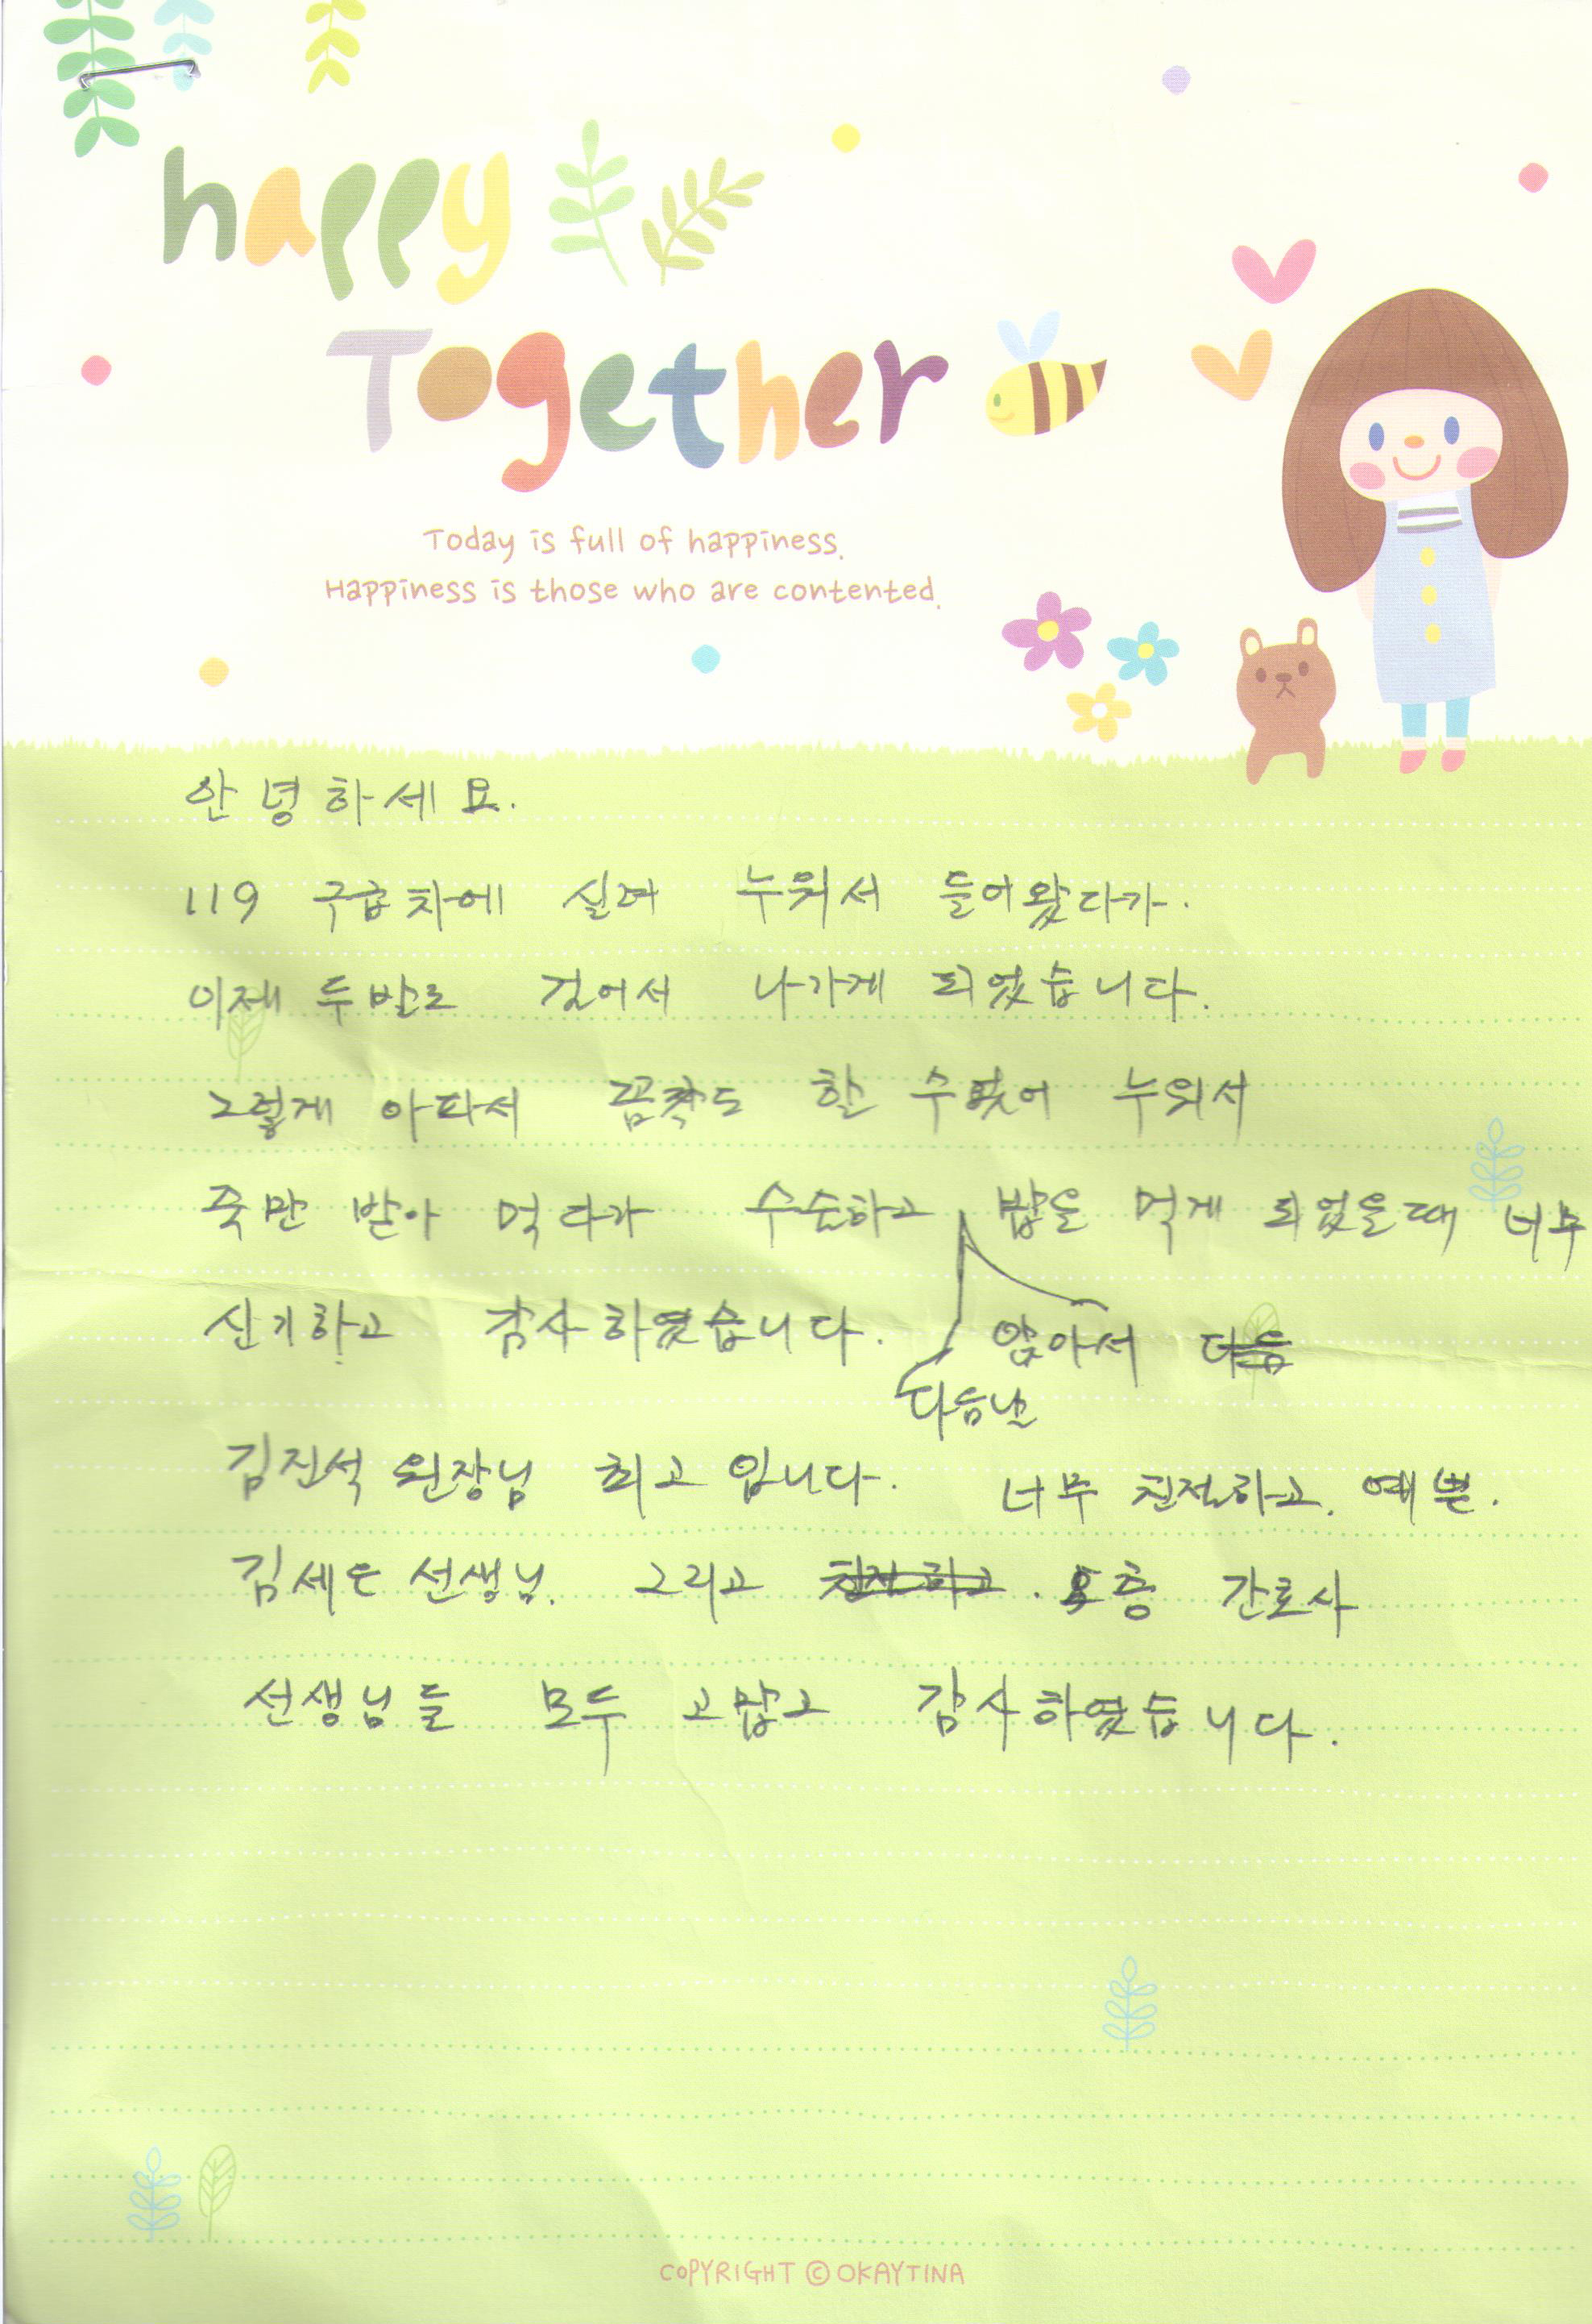 happy
Together
Today is full of happiness.
Happiness is those who are contented.
안녕하세요.
119 구급차에 실려 누워서 들어왔다가.
이제 두발로 걸어서 나가게 되었습니다.
그렇게 아파서 꼼짝도 할 수없어 누워서
죽만 받아 먹다가 수술하고 밥을 먹게 되었을때 너무
신기하고 감사하였습니다. 앉아서 다음
다음날
김진석 원장님 최고 입니다. 너무 친절하고. 예쁜.
김세은 선생님. 그리고 친절하고. 5층 간호사
선생님들 모두 고맙고 감사하였습니다.
COPYRIGHT © OKAYTINA